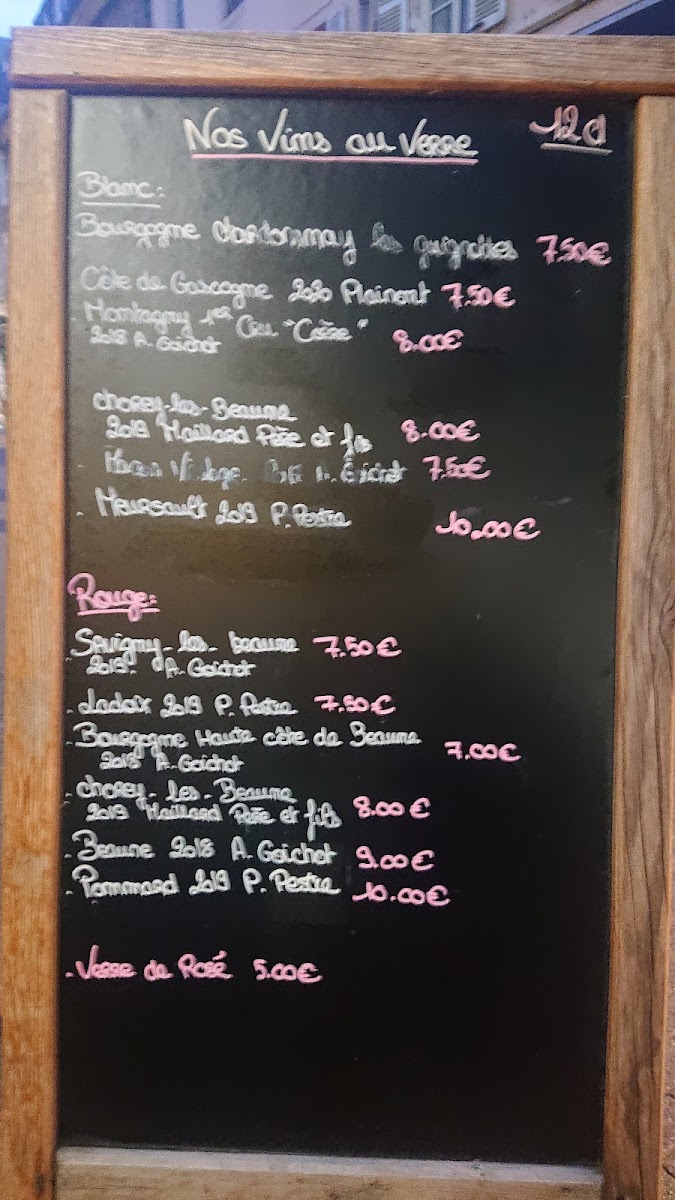 Nos Vins au Verre 12cl
Blanc:
Bourgogne chardonnay les guignottes 7.50€
Côte de Gascogne 2020 Plaimont 7.50€
. Montagny 1er Cru "Coère" 8.00€
2018 A. Goichot
chorey-les-Beaune
2019 Maillard Père et fils 8.00€
. Macon Village A. Goichot 7.50€
. Meursault 2019 P. Pestre 10.00€
Rouge:
. Savigny-les-beaune 7.50€
2019. A. Goichot
. Ladoix 2019 P. Pestre 7.50€
. Bourgogne Haute côte de Beaune 7.00€
2018 A. Goichot
. chorey-les-Beaune
2019 Maillard Père et fils 8.00€
. Beaune 2018 A. Goichot 9.00€
. Pommard 2019 P. Pestre 10.00€
. Verre de Rosé 5.00€